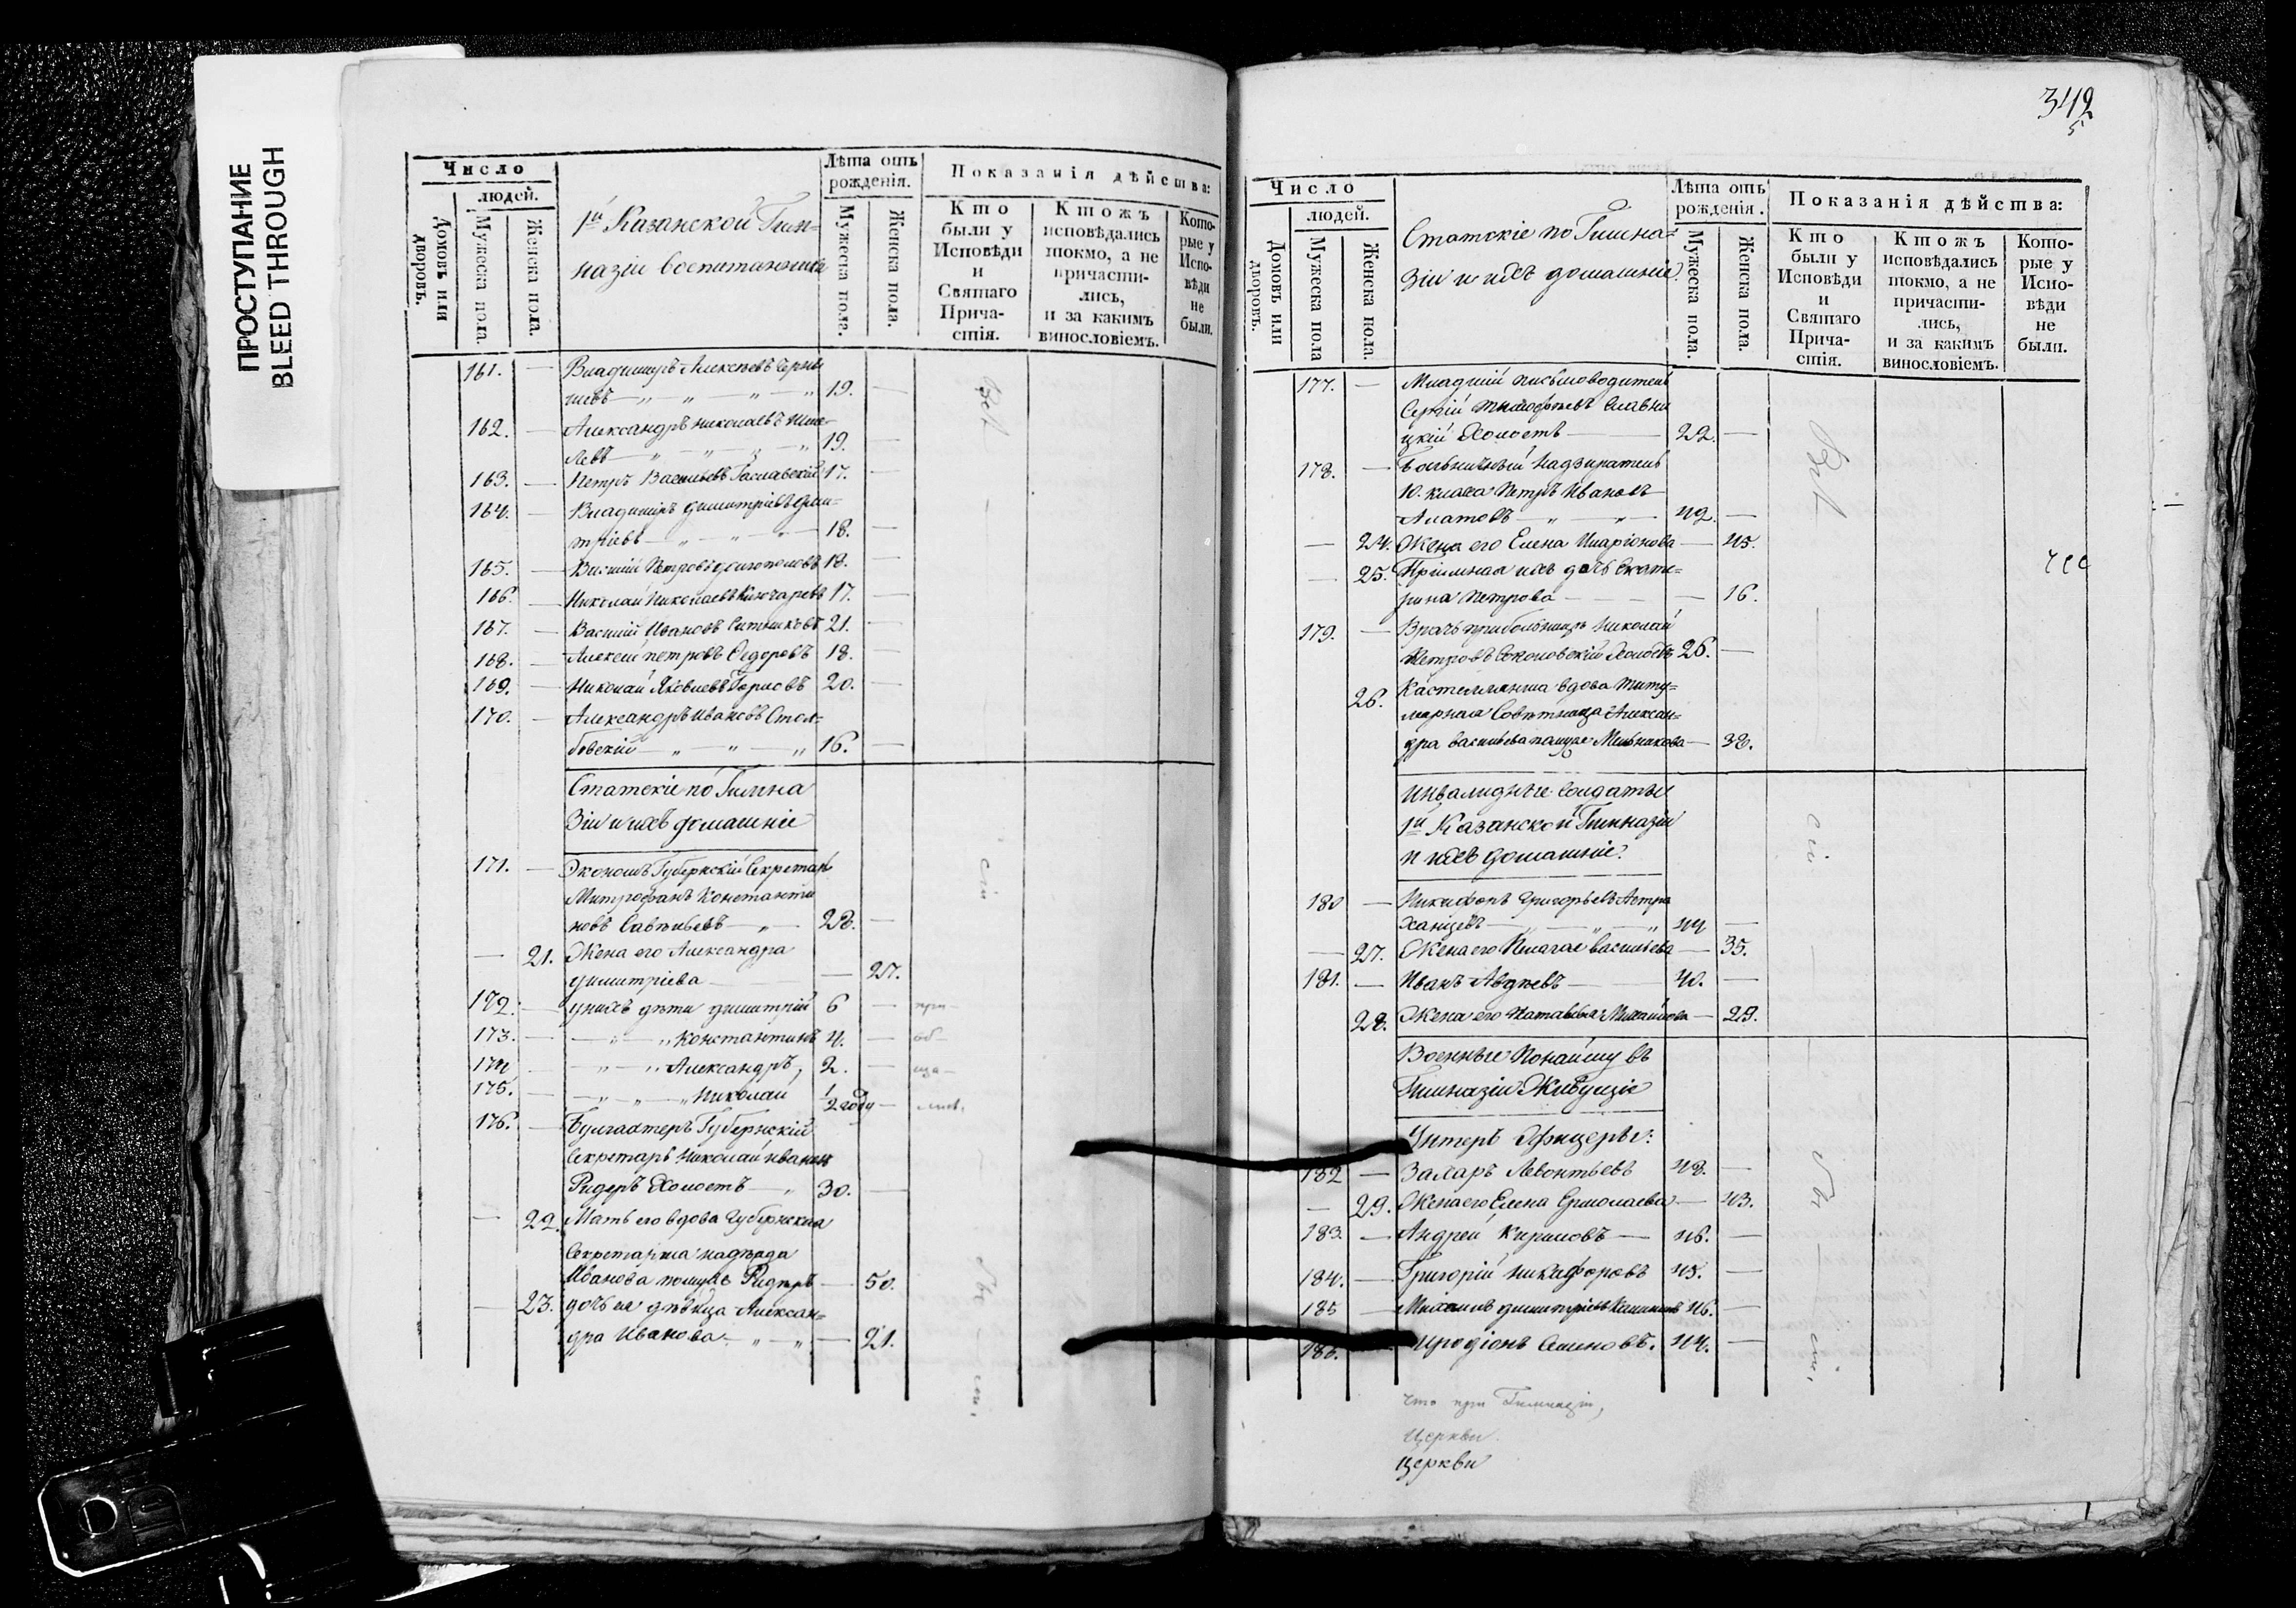 ПРОСТУПАНИЕ
BLEED THROUGH
Число
людей.
Домовъ или дворовъ.
Мужеска пола.
Женска пола.
1й Казанской Гим=
назіи воспитанники
Лѣта отъ
рожденія.
Мужеска пола.
Женска пола.
Показанія дѣйства:
Кто
были у
Исповѣди
и
Святаго
Прича-
стія.
Ктожъ
исповѣдались
токмо, а не
причасти-
лись,
и за какимъ
винословіемъ.
Кото-
рые у
Испо-
вѣди
не
были.
161. — Владимиръ Алексѣевъ Черны
шевъ — 19. —
162. — Александръ Николаевъ
левъ — 19. —
163. — Петръ Васильевъ 17. —
164. — Владимиръ Димитріевъ Дми=
тріевъ — 18. —
165. — Василій Петровъ Долгополовъ 18. —
166. — Николай Николаевъ Ключаревъ 17. —
167. — Василій Ивановъ Ситниковъ 21. —
168. — Алексѣй Петровъ Ѳедоровъ 18. —
169. — Николай Яковлевъ Борисовъ 20. —
170. — Александръ Ивановъ Стол=
бовскій — 16. —
Статскіе по Гимна
зіи и ихъ домашніе
171. — Экономъ Губернскій Секретарь
Митрофанъ Константи
новъ Савельевъ — 28. —
— 21. Жена его Александра
Димитріева — 27.
172. — У нихъ дѣти Димитрій 6 — при
173. — Константинъ 4. — об
174 — Александръ, 2. — ща
175. — Николай 1/2 году —
176. — Бухгалтеръ Губернскій
Секретарь Николай Ивановъ
Ридеръ Холостъ — 30. —
— 22. Мать его вдова Губернская
Секретарша Надѣжда
Иванова Ридеръ — 50.
— 23. дочь ея дѣвица Алексан=
дра Иванова — 21.
342
5
Число
людей.
Домовъ или дворовъ.
Мужеска пола
Женска пола.
Статскіе по Гимна=
зіи и ихъ домашніе.
Лѣта отъ
рожденія.
Мужеска пола.
Женска пола.
Показанія дѣйства:
Кто
были у
Исповѣди
и
Святаго
Прича-
стія.
Ктожъ
исповѣдались
токмо, а не
причасти-
лись,
и за какимъ
винословіемъ.
Кото-
рые у
Испо-
вѣди
не
были.
177. — Младшій письмоводитель
Сергій Тимофѣевъ Славни
цкій Холостъ — 22. —
178. — Больничный Надзиратель
10. класса Петръ Ивановъ
Алатовъ — 42. —
— 24. Жена его Елена Иларіонова — 45.
— 25. Пріемная ихъ дочь Екате=
рина Петрова — 16.
179. — Врачь при больницѣ Николай
Петровъ Соколовскій Холостъ 26. —
26. Кастелянша вдова Титу=
лярная Совѣтница Алексан=
дра Васильева Мельникова — 38.
Инвалидные Солдаты
1й Казанской Гимназіи
и ихъ домашніе.
180 — Никифоръ Григорьевъ Астра
ханцевъ — 44 —
— 27. Жена его Пелагея Васильева — 35.
181. — Иванъ Авдѣевъ — 40. —
28. Жена его Наталья Михайлова — 29.
Военные по найму въ
Гимназіи Живущіе
Унтеръ Офицеры:
182 — Захаръ Левонтьевъ 48. —
— 29. Жена его Елена Ермолаева — 43.
183. — Андрей Кириловъ — 46. —
184. — Григорій Никифоровъ 45. —
185 — Михаилъ Димитріевъ 46. —
186. Иродіонъ Семеновъ. 44. —
что при Гимназіи,
Церкви.
Церкви